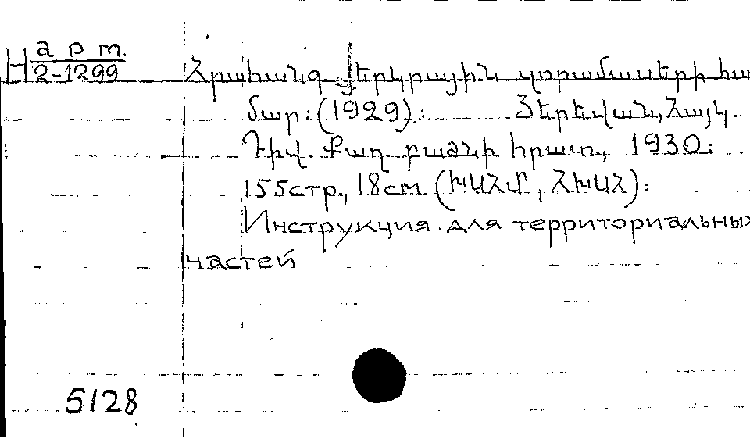 Н а р т.
2-1299
Հրահանգ յերկրային զորամասերի հա
մար: (1929): Յերեվան, Հայկ.
Դիվ. Քաղ բաժնի հրատ., 1930:
155стр., 18см. (ԽՍՀՄ, ՀԽՍՀ):
Инструкция для территориальных
частей
5128